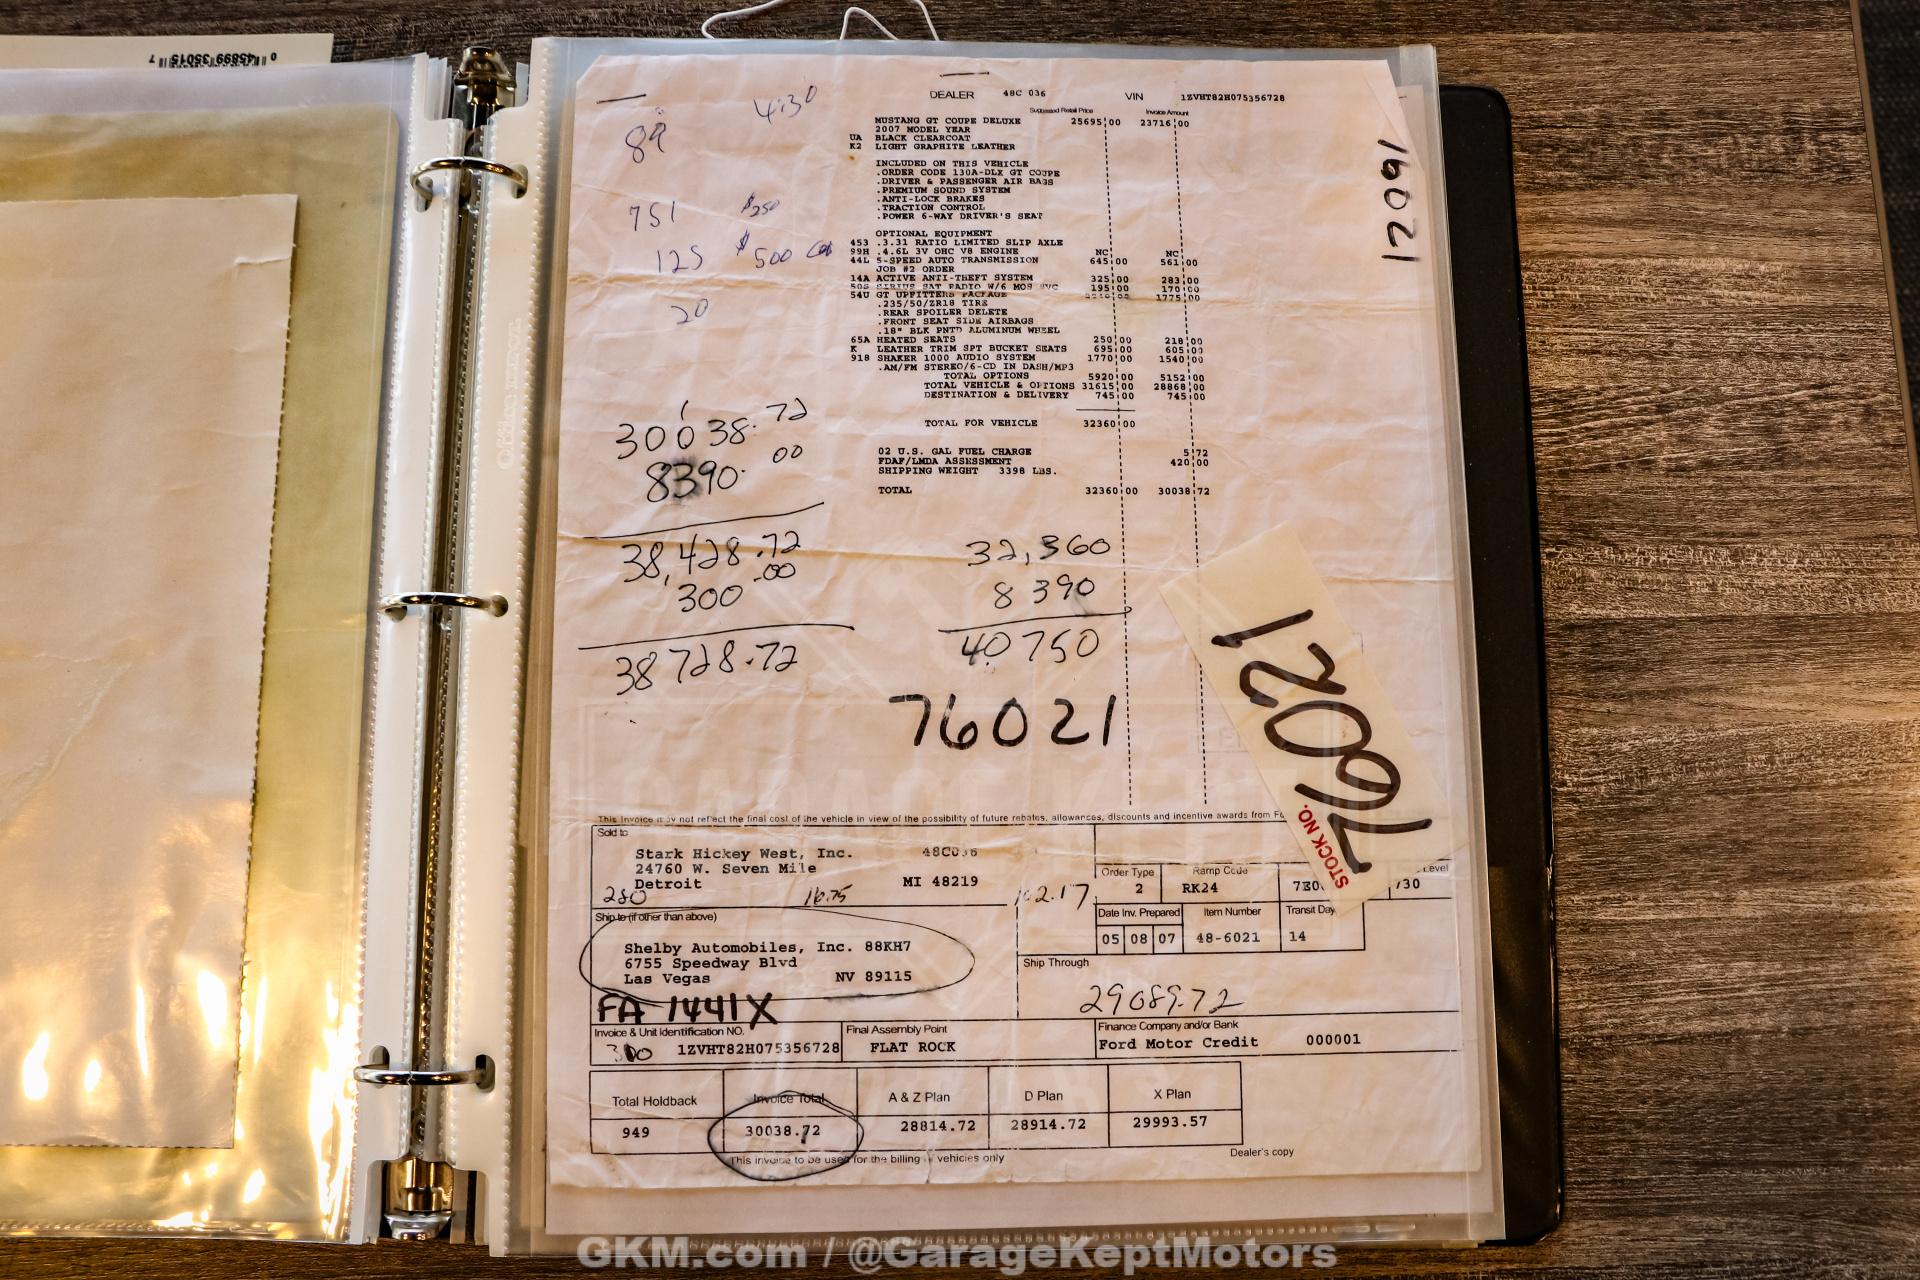 0 45899 35015 7
89
4:30
751 $250
125 $500
20
16021
DEALER 48C 036 VIN 1ZVHT82H075356728
Suggested Retail Price Invoice Amount
MUSTANG GT COUPE DELUXE 25695 00 23716 00
2007 MODEL YEAR
UA BLACK CLEARCOAT
K2 LIGHT GRAPHITE LEATHER
INCLUDED ON THIS VEHICLE
.ORDER CODE 130A-DLX GT COUPE
.DRIVER & PASSENGER AIR BAGS
.PREMIUM SOUND SYSTEM
.ANTI-LOCK BRAKES
.TRACTION CONTROL
.POWER 6-WAY DRIVER'S SEAT
OPTIONAL EQUIPMENT
453 .3.31 RATIO LIMITED SLIP AXLE
99H .4.6L 3V OHC V8 ENGINE NC NC
44L 5-SPEED AUTO TRANSMISSION 645 00 561 00
JOB #2 ORDER
14A ACTIVE ANTI-THEFT SYSTEM 325 00 283 00
50S SIRIUS SAT RADIO W/6 MOS SVC 195 00 170 00
54U GT UPFITTERS PACKAGE 1775 00
.235/50/ZR18 TIRE
.REAR SPOILER DELETE
.FRONT SEAT SIDE AIRBAGS
.18" BLK PNTD ALUMINUM WHEEL
65A HEATED SEATS 250 00 218 00
K LEATHER TRIM SPT BUCKET SEATS 695 00 605 00
918 SHAKER 1000 AUDIO SYSTEM 1770 00 1540 00
.AM/FM STEREO/6-CD IN DASH/MP3
TOTAL OPTIONS 5920 00 5152 00
TOTAL VEHICLE & OPTIONS 31615 00 28868 00
DESTINATION & DELIVERY 745 00 745 00
TOTAL FOR VEHICLE 32360 00
02 U.S. GAL FUEL CHARGE 5 72
FDAF/LMDA ASSESSMENT 420 00
SHIPPING WEIGHT 3398 LBS.
TOTAL 32360 00 30038 72
30038.72
8390.00
38,428.72
300.00
38728.72
32,360
8390
40750
76021
76021
STOCK NO.
This Invoice may not reflect the final cost of the vehicle in view of the possibility of future rebates, allowances, discounts and incentive awards from
Sold to
Stark Hickey West, Inc. 48C036
24760 W. Seven Mile
Detroit MI 48219
280 16.75 102.17
Order Type Ramp Code Level
2 RK24 730
Ship to (if other than above)
Shelby Automobiles, Inc. 88KH7
6755 Speedway Blvd
Las Vegas NV 89115
Date Inv. Prepared Item Number Transit Day
05 08 07 48-6021 14
Ship Through
FA 1441X
29089.72
Invoice & Unit Identification NO. Final Assembly Point Finance Company and/or Bank
300 1ZVHT82H075356728 FLAT ROCK Ford Motor Credit 000001
Total Holdback Invoice Total A & Z Plan D Plan X Plan
949 30038.72 28814.72 28914.72 29993.57
This invoice to be used for the billing of vehicles only Dealer's copy
GKM.com / @GarageKeptMotors